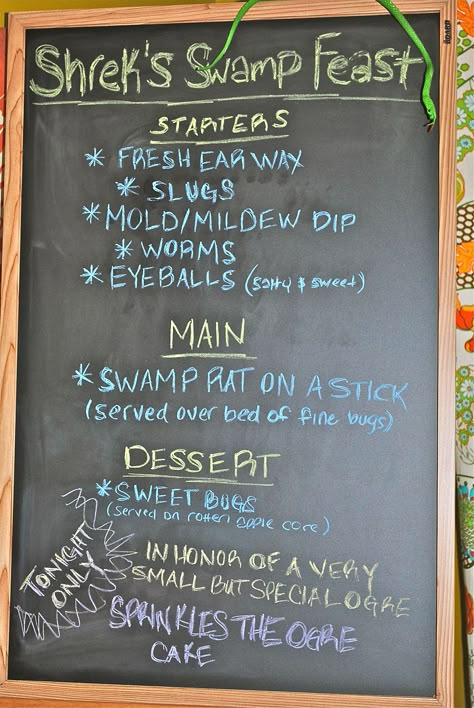 Shrek's Swamp Feast
STARTERS
* FRESH EAR WAX
* SLUGS
* MOLD/MILDEW DIP
* WORMS
* EYEBALLS (salty & sweet)
MAIN
* SWAMP RAT ON A STICK
(served over bed of fine bugs)
DESSERT
* SWEET BUGS
(served on rotten apple core)
TONIGHT
ONLY
IN HONOR OF A VERY
SMALL BUT SPECIAL OGRE
SPRINKLES THE OGRE
CAKE
BOARD